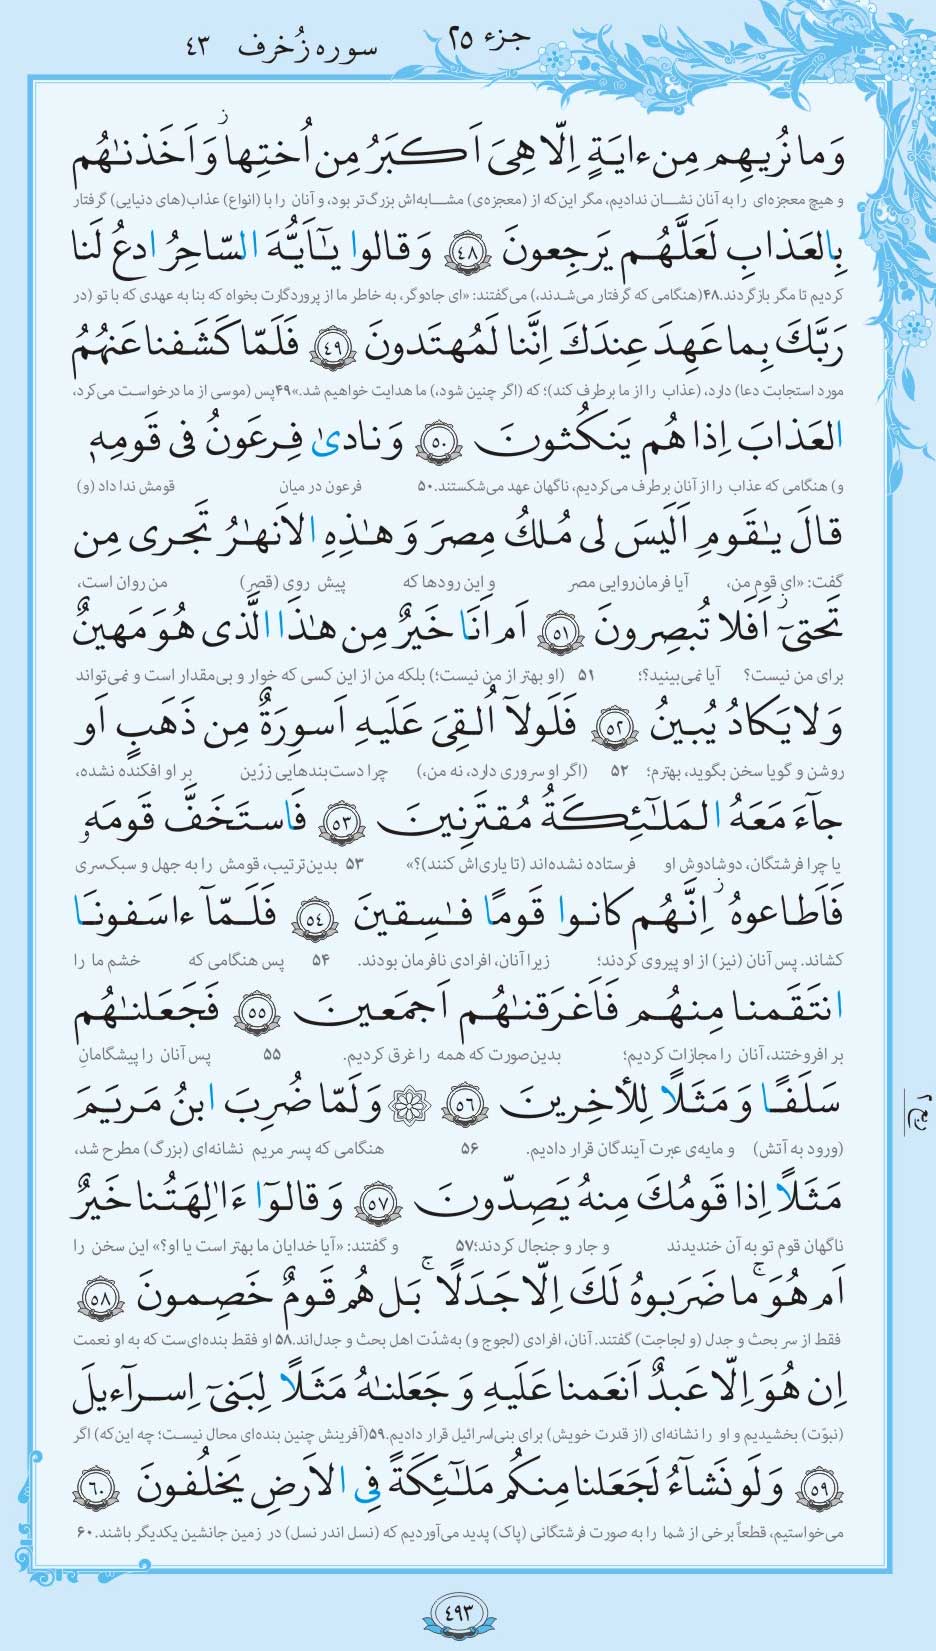 جزء ۲۵
سوره زُخرف ۴۳
وَ ما نُريهِم مِن ءايَةٍ اِلّا هِىَ اَكبَرُ مِن اُختِها ز وَ اَخَذنٰهُم
و هیچ معجزه‌ای را به آنان نشـان ندادیم، مگر این‌که از (معجزه‌ی) مشـابه‌اش بزرگ‌تر بود، و آنان را با (انواع) عذاب(های دنیایی) گرفتار
بِالعَذابِ لَعَلَّهُم يَرجِعونَ ﴿٤٨﴾ وَ قالوا يٰٓاَيُّهَ السّاحِرُ ادعُ لَنا
کردیم تا مگر بازگردند.۴۸(هنگامی که گرفتار می‌شدند،) می‌گفتند: «ای جادوگر، به خاطر ما از پروردگارت بخواه که بنا به عهدی که با تو (در
رَبَّكَ بِما عَهِدَ عِندَكَ اِنَّنا لَمُهتَدونَ ﴿٤٩﴾ فَلَمّا كَشَفنا عَنهُمُ
مورد استجابت دعا) دارد، (عذاب را از ما برطرف کند)؛ که (اگر چنین شود،) ما هدایت خواهیم شد.»۴۹پس (موسی از ما درخواست می‌کرد،
العَذابَ اِذا هُم يَنكُثونَ ﴿٥٠﴾ وَ نادىٰ فِرعَونُ فى قَومِهٖ
و) هنگامی که عذاب را از آنان برطرف می‌کردیم، ناگهان عهد می‌شکستند.۵۰ فرعون در میان قومش ندا داد (و)
قالَ يٰقَومِ اَلَيسَ لى مُلكُ مِصرَ وَ هٰذِهِ الاَنهٰرُ تَجرى مِن
گفت: «ای قوم من، آیا فرمان‌روایی مصر و این رودها که پیش روی (قصر) من روان است،
تَحتىٓ ز اَفَلا تُبصِرونَ ﴿٥١﴾ اَم اَنَا خَيرٌ مِن هٰذَا الَّذى هُوَ مَهينٌ
برای من نیست؟ آیا نمی‌بینید؟؛ ۵۱ (او بهتر از من نیست؛) بلکه من از این کسی که خوار و بی‌مقدار است و نمی‌تواند
وَ لا يَكادُ يُبينُ ﴿٥٢﴾ فَلَولآ اُلقِىَ عَلَيهِ اَسوِرَةٌ مِن ذَهَبٍ اَو
روشن و گویا سخن بگوید، بهترم؛ ۵۲ (اگر او سروری دارد، نه من،) چرا دست‌بندهایی زرّین بر او افکنده نشده،
جآءَ مَعَهُ المَلٰٓئِكَةُ مُقتَرِنينَ ﴿٥٣﴾ فَاستَخَفَّ قَومَهٗ
یا چرا فرشتگان، دوشادوش او فرستاده نشده‌اند (تا یاری‌اش کنند)؟» ۵۳ بدین‌ترتیب، قومش را به جهل و سبک‌سری
فَاَطاعوهُ ز اِنَّهُم كانوا قَومًا فٰسِقينَ ﴿٥٤﴾ فَلَمّآ ءاسَفونَا
کشاند. پس آنان (نیز) از او پیروی کردند؛ زیرا آنان، افرادی نافرمان بودند. ۵۴ پس هنگامی که خشم ما را
انتَقَمنا مِنهُم فَاَغرَقنٰهُم اَجمَعينَ ﴿٥٥﴾ فَجَعَلنٰهُم
بر افروختند، آنان را مجازات کردیم؛ بدین‌صورت که همه را غرق کردیم. ۵۵ پس آنان را پیشگامانِ
سَلَفًا وَ مَثَلًا لِلأٰخِرينَ ﴿٥٦﴾ ۞ وَ لَمّا ضُرِبَ ابنُ مَريَمَ
(ورود به آتش) و مایه‌ی عبرت آیندگان قرار دادیم. ۵۶ هنگامی که پسر مریم نشانه‌ای (بزرگ) مطرح شد،
مَثَلًا اِذا قَومُكَ مِنهُ يَصِدّونَ ﴿٥٧﴾ وَ قالوٓا ءَاٰلِهَتُنا خَيرٌ
ناگهان قوم تو به آن خندیدند و جار و جنجال کردند؛۵۷ و گفتند: «آیا خدایان ما بهتر است یا او؟» این سخن را
اَم هُوَ ج ما ضَرَبوهُ لَكَ اِلّا جَدَلًا ج بَل هُم قَومٌ خَصِمونَ ﴿٥٨﴾
فقط از سر بحث و جدل (و لجاجت) گفتند. آنان، افرادی (لجوج و) به‌شدّت اهل بحث و جدل‌اند.۵۸ او فقط بنده‌ای‌ست که به او نعمت
اِن هُوَ اِلّا عَبدٌ اَنعَمنا عَلَيهِ وَ جَعَلنٰهُ مَثَلًا لِبَنىٓ اِسرآءيلَ
(نبوّت) بخشیدیم و او را نشانه‌ای (از قدرت خویش) برای بنی‌اسرائیل قرار دادیم.۵۹(آفرینش چنین بنده‌ای محال نیست؛ چه این‌که) اگر
﴿٥٩﴾ وَ لَو نَشآءُ لَجَعَلنا مِنكُم مَلٰٓئِكَةً فِى الاَرضِ يَخلُفونَ ﴿٦٠﴾
می‌خواستیم، قطعاً برخی از شما را به صورت فرشتگانی (پاک) پدید می‌آوردیم که (نسل اندر نسل) در زمین جانشین یکدیگر باشند.۶۰
۴۹۳